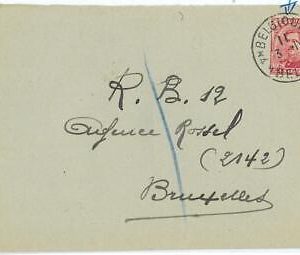 BELGIQUE
R. B. 12
Agence Rossel
(2142)
Bruxelles